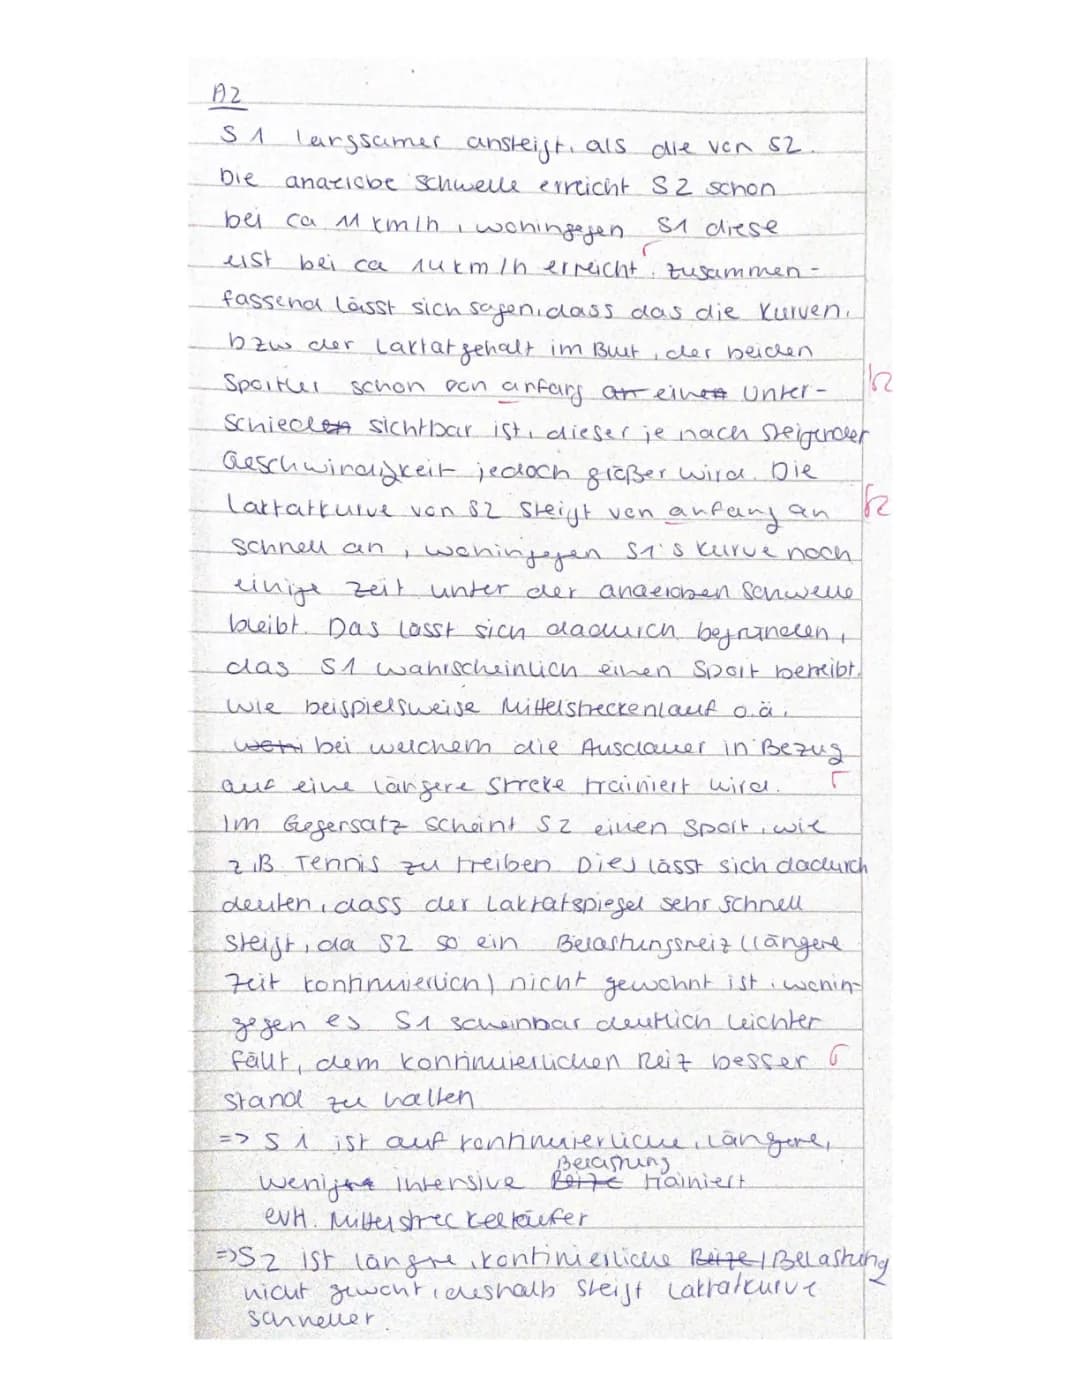 A2
S1 langsamer ansteigt, als die von S2.
Die anaerobe Schwelle erreicht S2 schon
bei ca 11 km/h, woningegen S1 diese
erst bei ca 14 km/h erreicht. Zusammen-
fassend lässt sich sagen, dass das die Kurven,
bzw der Laktatgehalt im Blut, der beiden
Sportler schon von anfang an einen Unter-
schieden sichtbar ist, dieser je nach steigender
Geschwindigkeit jedoch größer wird. Die
Laktatkurve von S2 steigt von anfang an
schnell an, woningegen S1's Kurve noch
einige Zeit unter der anaeroben Schwelle
bleibt. Das lässt sich dadurch begründen,
das S1 wahrscheinlich einen Sport betreibt,
wie beispielsweise Mittelstreckenlauf o.ä.
bei welchem die Ausdauer in Bezug
auf eine längere Strecke trainiert wird.
Im Gegensatz scheint S2 einen Sport, wie
z.B. Tennis zu treiben. Dies lässt sich dadurch
deuten, dass der Laktatspiegel sehr schnell
steigt, da S2 so ein Belastungsreiz (längere
Zeit kontinuierlich) nicht gewohnt ist, wonin-
gegen es S1 scheinbar deutlich leichter
fällt, dem kontinuierlichen Reiz besser
stand zu halten
=> S1 ist auf kontinuierliche, längere,
Belastung
wenige intensive Reize trainiert
evtl. Mittelstreckenläufer
=> S2 ist längre, kontinierliche Reize / Belastung
nicht gewohnt, deshalb steigt Laktatkurve
schneller.